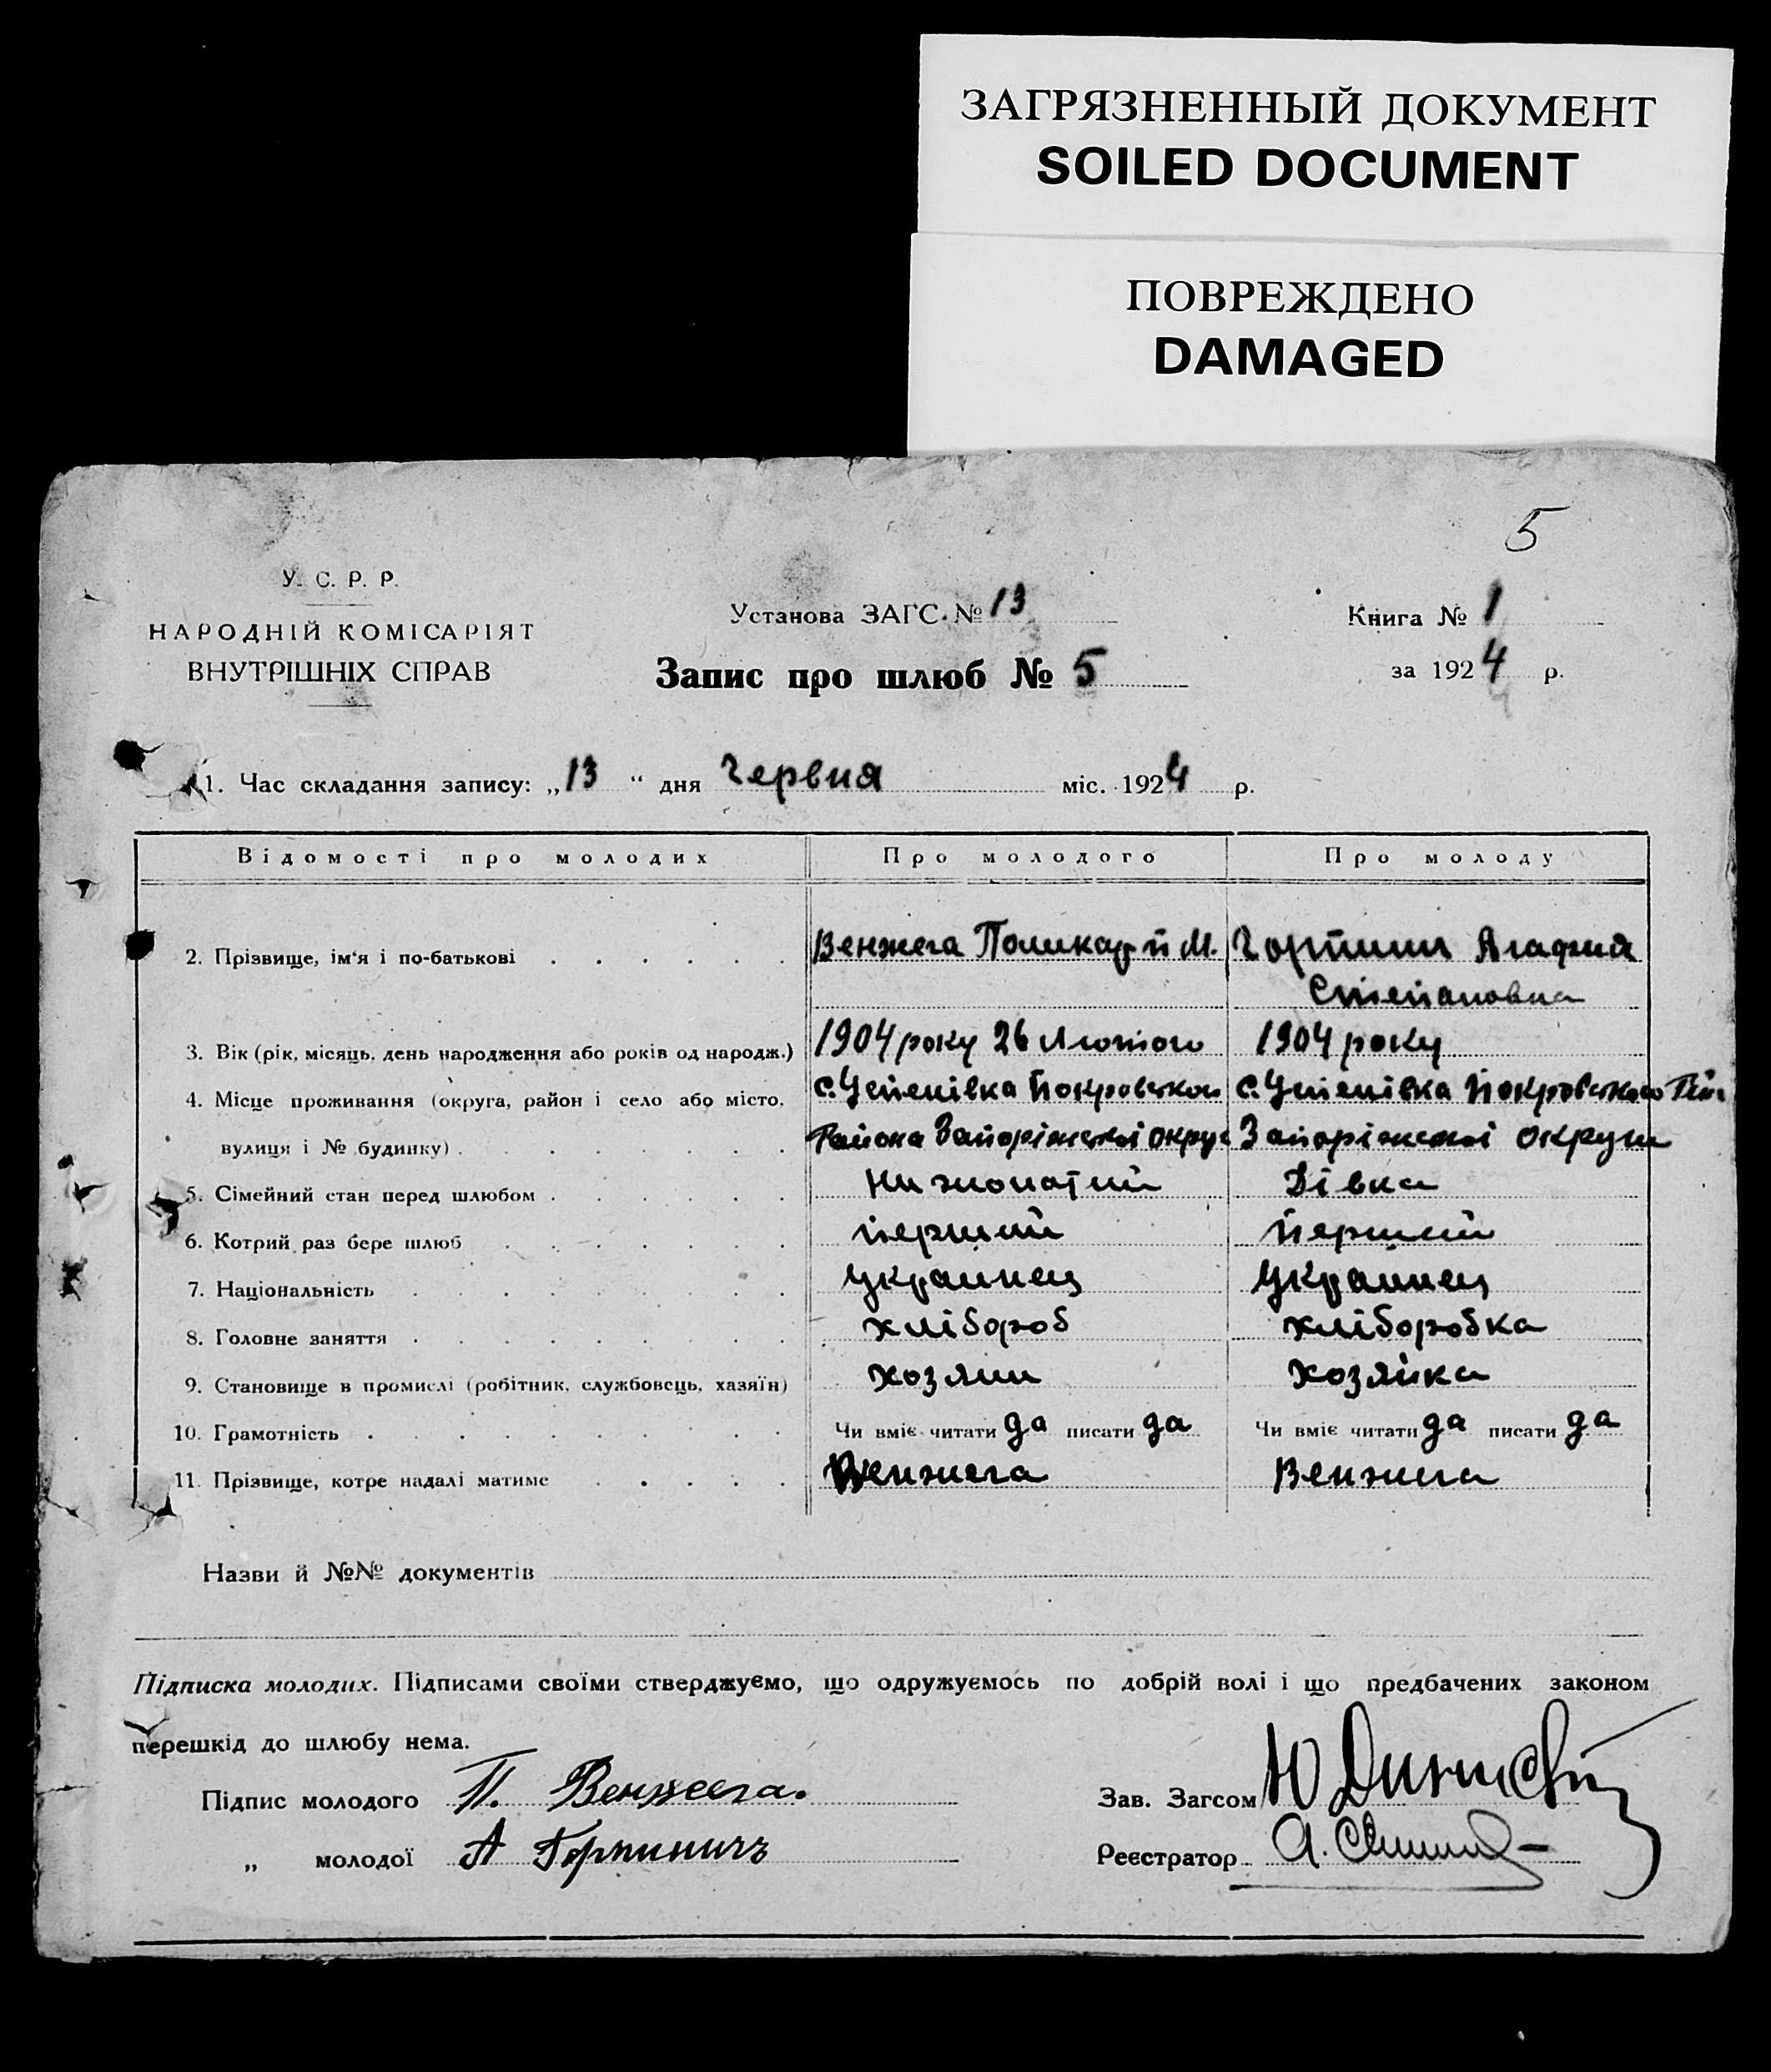 ЗАГРЯЗНЕННЫЙ ДОКУМЕНТ
SOILED DOCUMENT
ПОВРЕЖДЕНО
DAMAGED
5
У. С. Р. Р.
НАРОДНІЙ КОМІСАРІЯТ
ВНУТРІШНІХ СПРАВ
Установа ЗАГС. № 13
Запис про шлюб № 5
Книга № 1
за 1924 р.
1. Час складання запису: „13" дня Червня міс. 1924 р.
Відомості про молодих Про молодого Про молоду
2. Прізвище, ім'я і по-батькові Венжега Поликарп М. Агафия
Степановна
3. Вік (рік, місяць, день народження або років од народж.) 1904 року 26 Лютого 1904 року
4. Місце проживання (округа, район і село або місто, с. Успенівка Покровского с. Успенівка Покровського
вулиця і № будинку) Района Запоріжскої округ Запоріжскої округи
5. Сімейний стан перед шлюбом Дівка
6. Котрий раз бере шлюб перший перший
7. Національність украинец украинец
8. Головне заняття хлібороб хлiборобка
9. Становище в промислі (робітник, службовець, хазяїн) хозяин хозяйка
10. Грамотність Чи вміє читати да писати да Чи вміє читати да писати да
11. Прізвище, котре надалі матиме Венжега Венжега
Назви й №№ документів
Підписка молодих. Підписами своїми стверджуємо, що одружуємось по добрій волі і що предбачених законом
перешкід до шлюбу нема.
Підпис молодого П. Венжега.
Зав. Загсом
„ молодої А Горпиничъ
Реєстратор А.